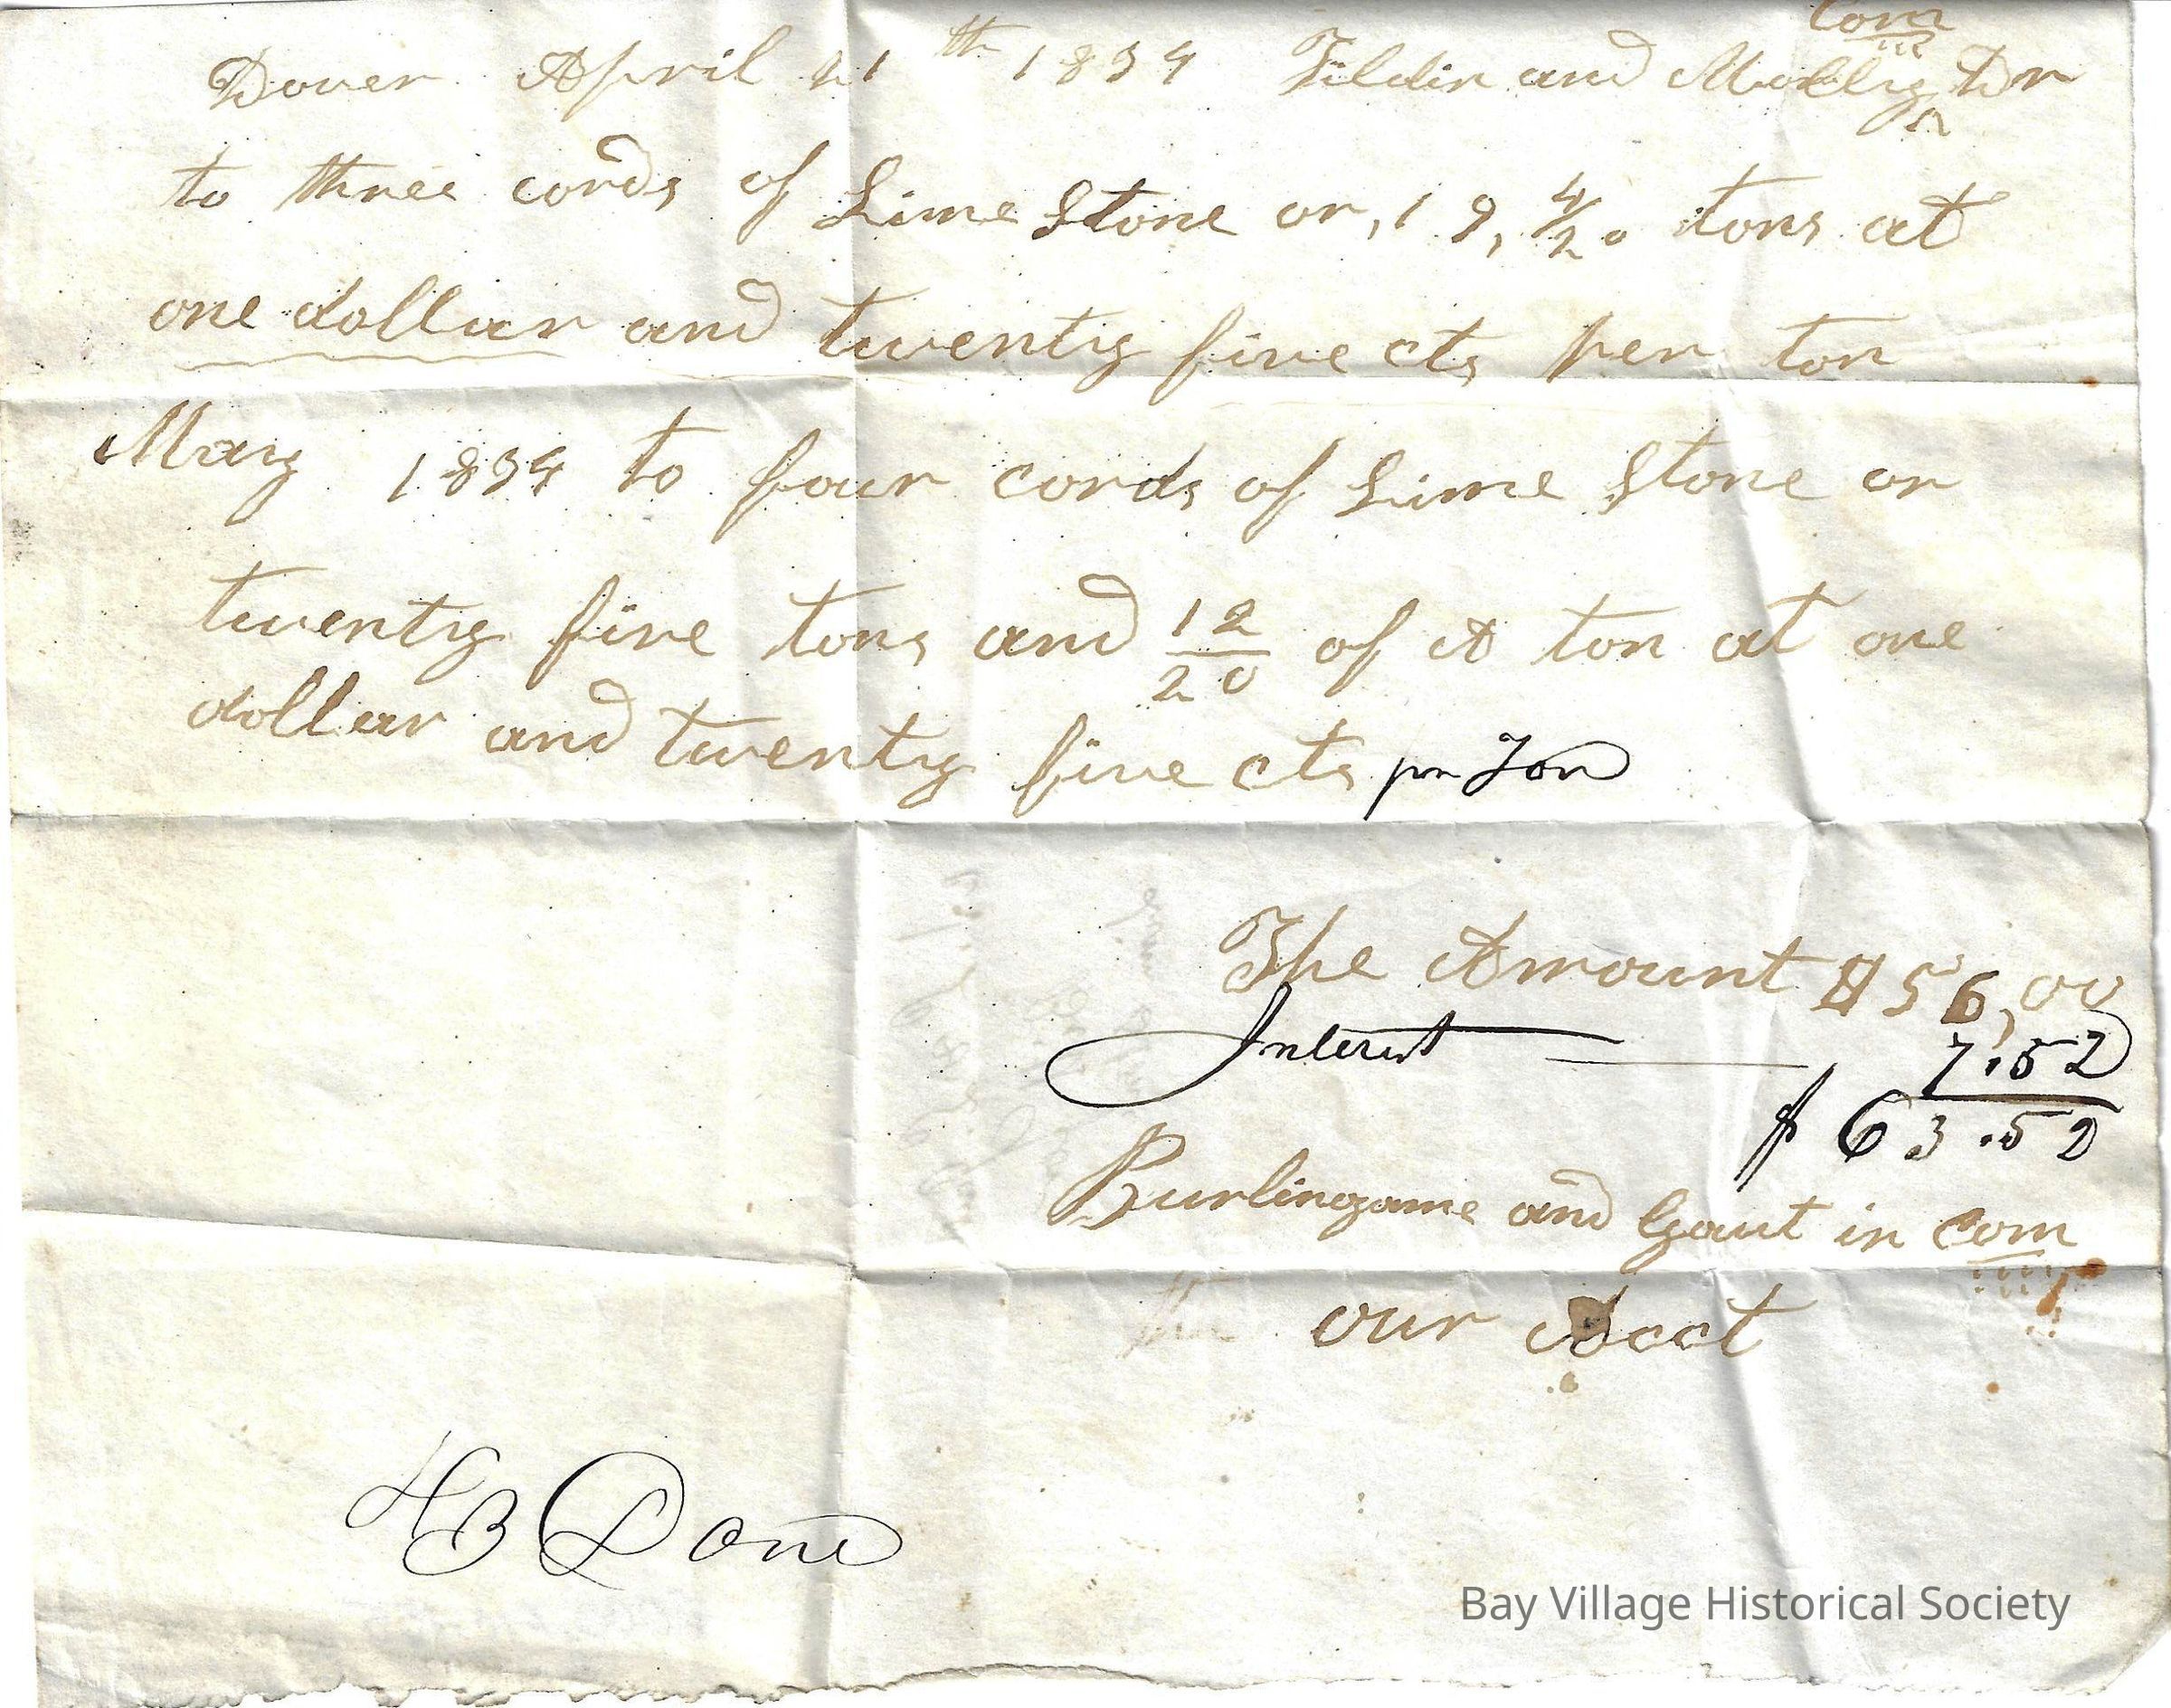 Com
Dover April 21th 1834 Tildin and Dr
to three cords of Lime Stone or, 19, 4/20 tons at
one dollar and twenty five cts per ton
May 1834 to four cords of Lime Stone or
twenty five tons and 12/20 of A ton at one
dollar and twenty five cts pr Ton
The Amount $56,00
Interest 7.52
$63.52
Burlingame and Gaut in Com
our Acct
HB
Bay Village Historical Society